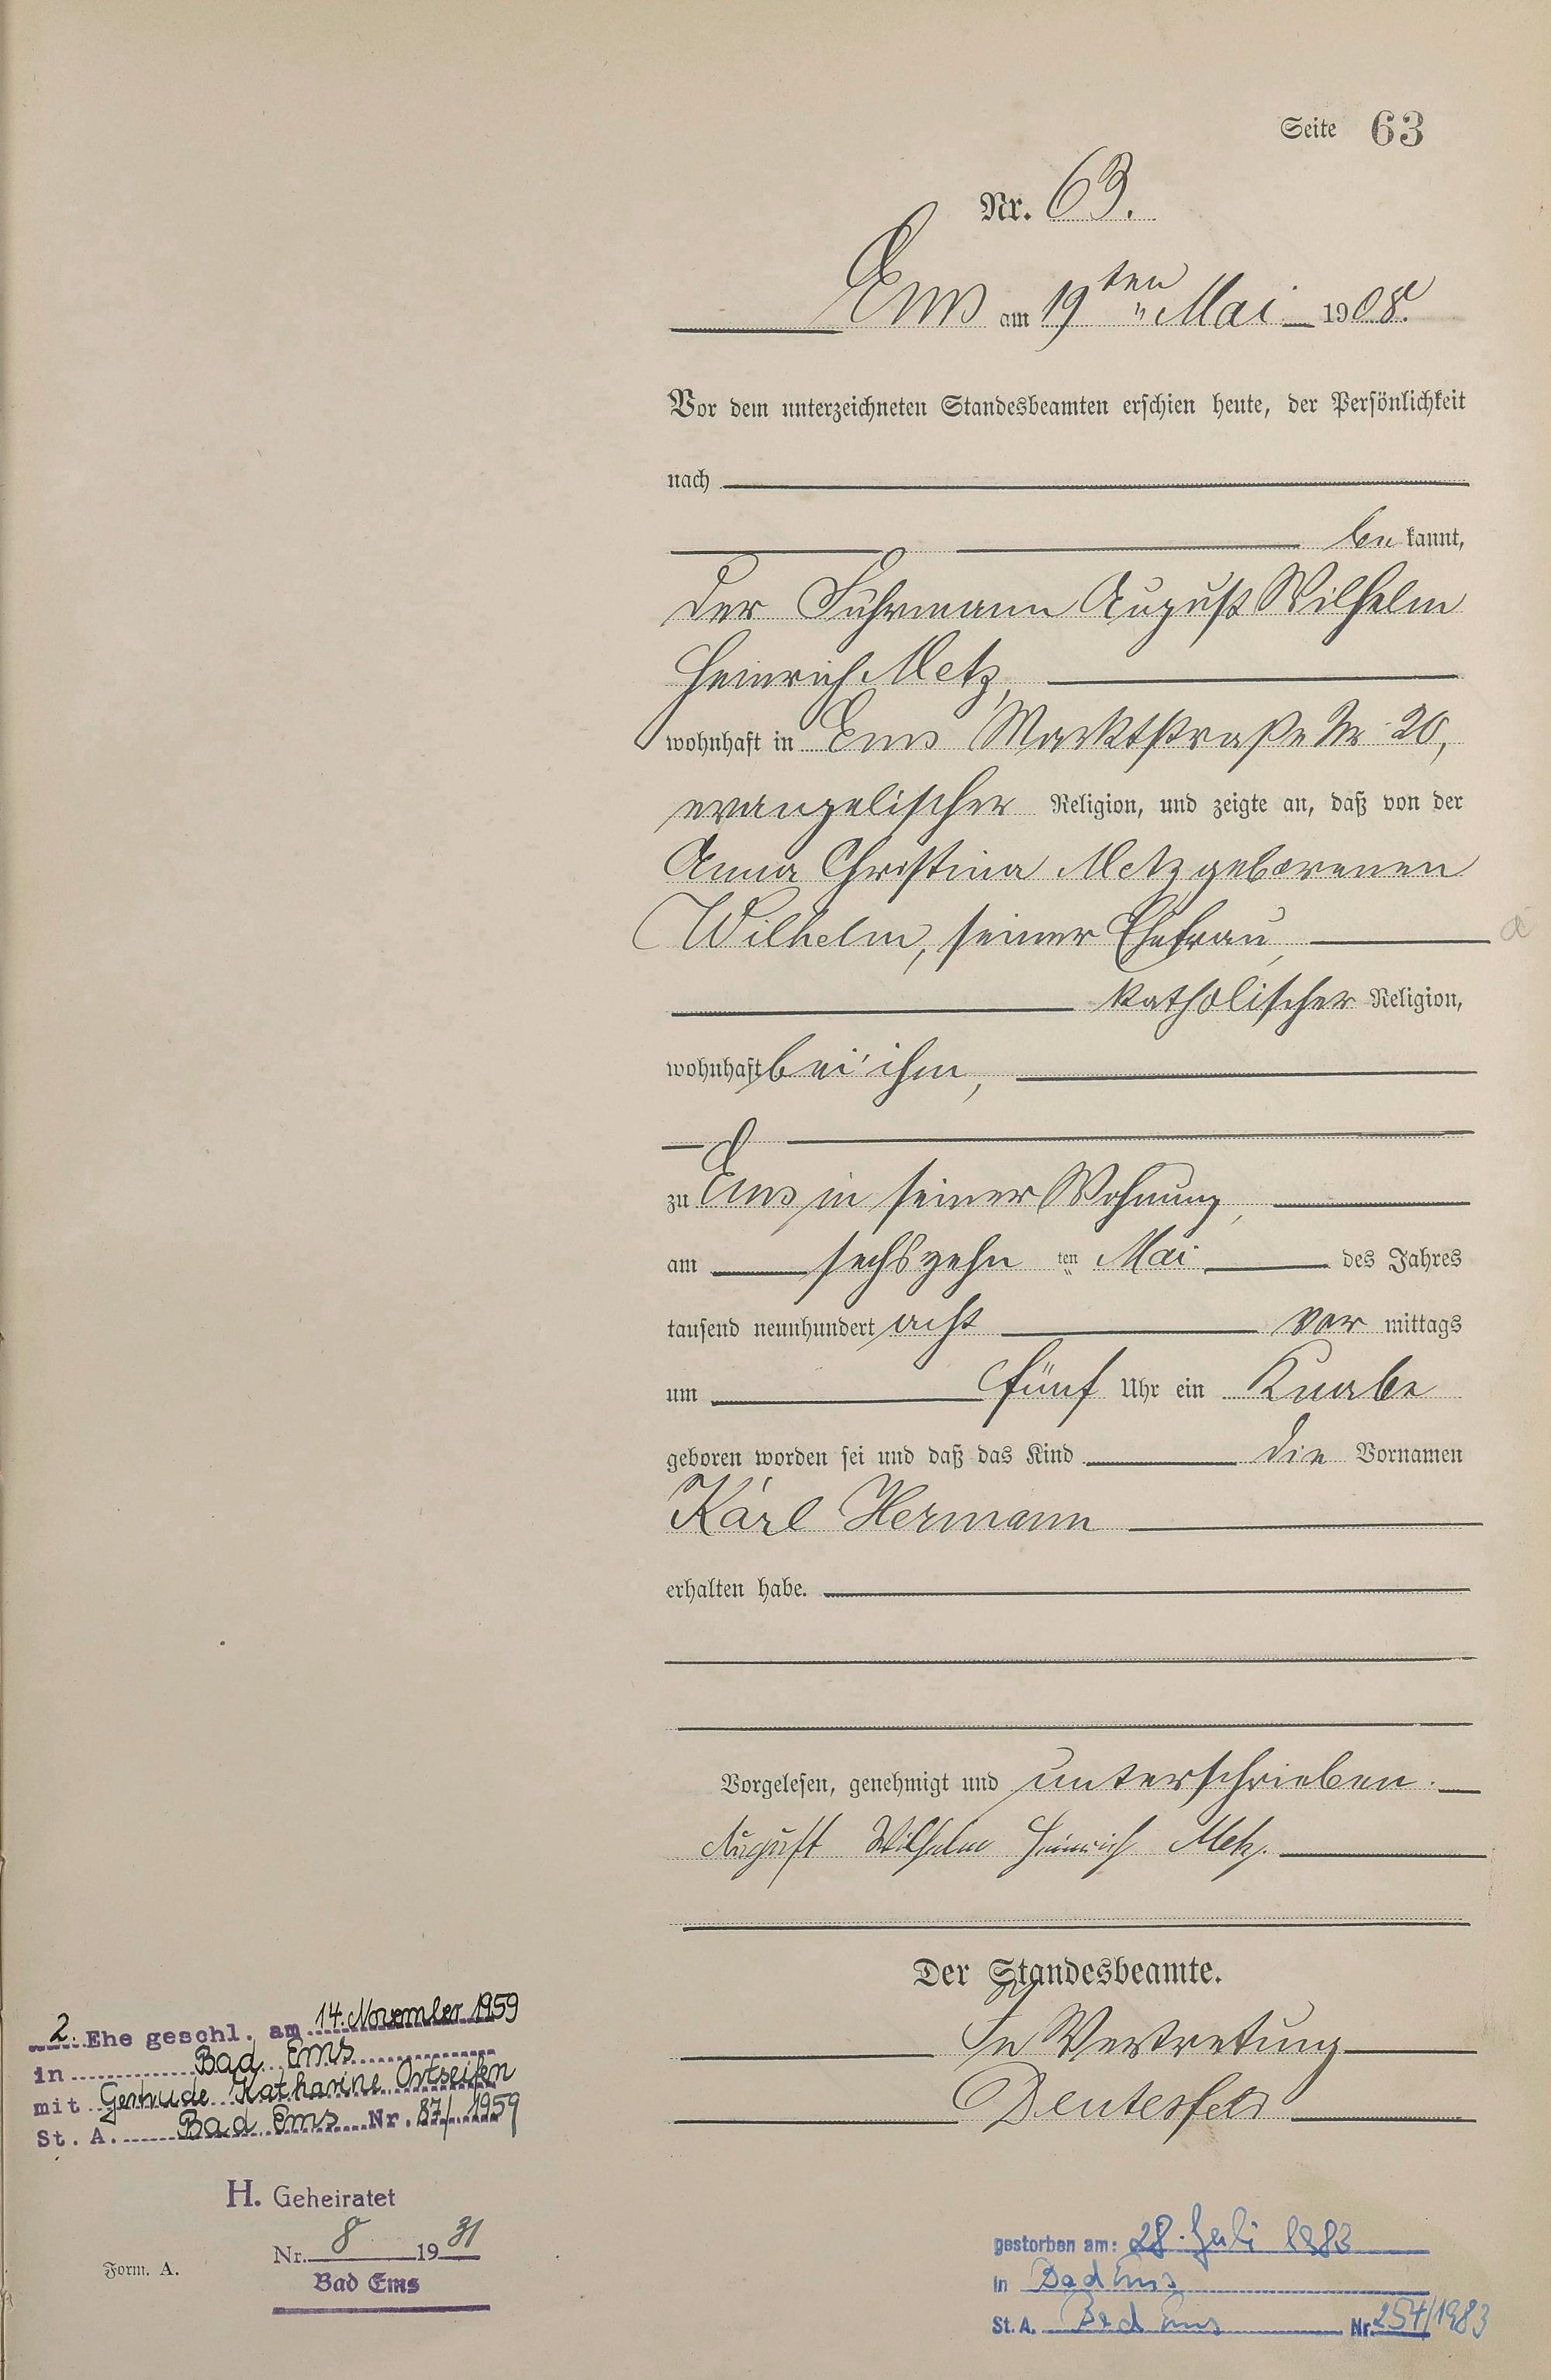 Seite 63
Nr. 63.
Ems am 19ten Mai 1908.
Vor dem unterzeichneten Standesbeamten erschien heute, der Persönlichkeit
nach
be kannt,
der Fuhrmann August Wilhelm
Heinrich Metz,
wohnhaft in Ems Marktstraße Nr 20,
evangelischer Religion, und zeigte an, daß von der
Anna Christina Metz geborenen
Wilhelm, seiner Ehefrau,
katholischer Religion,
wohnhaft bei ihm,
zu Ems in seiner Wohnung,
am sechszehn ten Mai des Jahres
tausend neunhundert acht vor mittags
um fünf Uhr ein Knabe
geboren worden sei und daß das Kind die Vornamen
Karl Hermann
erhalten habe.
Vorgelesen, genehmigt und unterschrieben.
August Wilhelm Heinrich Metz.
Der Standesbeamte.
In Vertretung
2. Ehe geschl. am 14. November 1959
in Bad Ems
mit Gertrude Katharine Ortseifen
St. A. Bad Ems Nr. 87/1959
H. Geheiratet
Nr. 8 1931
Bad Ems
Form. A.
gestorben am: 28. Juli 1983
in Bad Ems
St. A. Bad Ems Nr. 254/1983